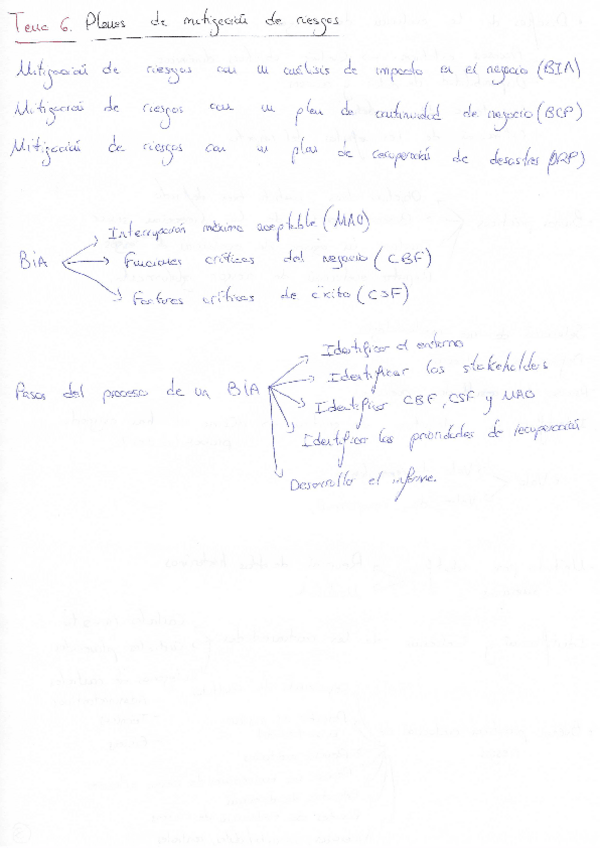 Tema 6. Planes de mitigación de riesgos
Mitigación de riesgos con un análisis de impacto en el negocio (BIA)
Mitigación de riesgos con un plan de continuidad de negocio (BCP)
Mitigación de riesgos con un plan de recuperación de desastres (DRP)
Interrupción máxima aceptable (MAO)
BIA → Funciones críticas del negocio (CBF)
Factores críticos de éxito (CSF)
Identificar el entorno
Identificar los stakeholders
Pasos del proceso de un BIA → Identificar CBF, CSF y MAO
Identificar las prioridades de recuperación
Desarrollo el informe.